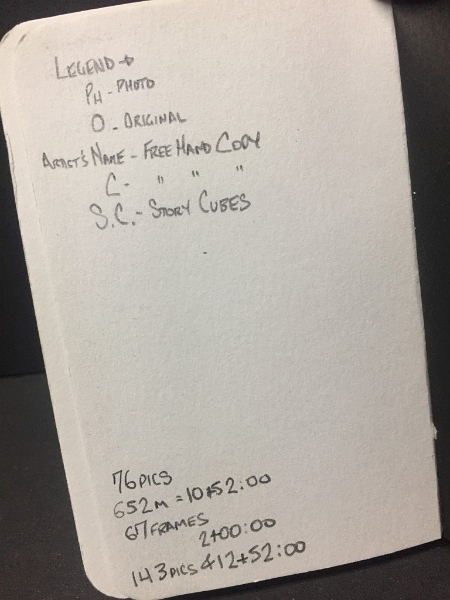 LEGEND →
PH - PHOTO
O - ORIGINAL
ARTIST'S NAME - FREE HAND COPY
C - " " "
S.C. - STORY CUBES
76 PICS
652M = 10+52:00
67 FRAMES
2+00:00
143 PICS & 12+52:00